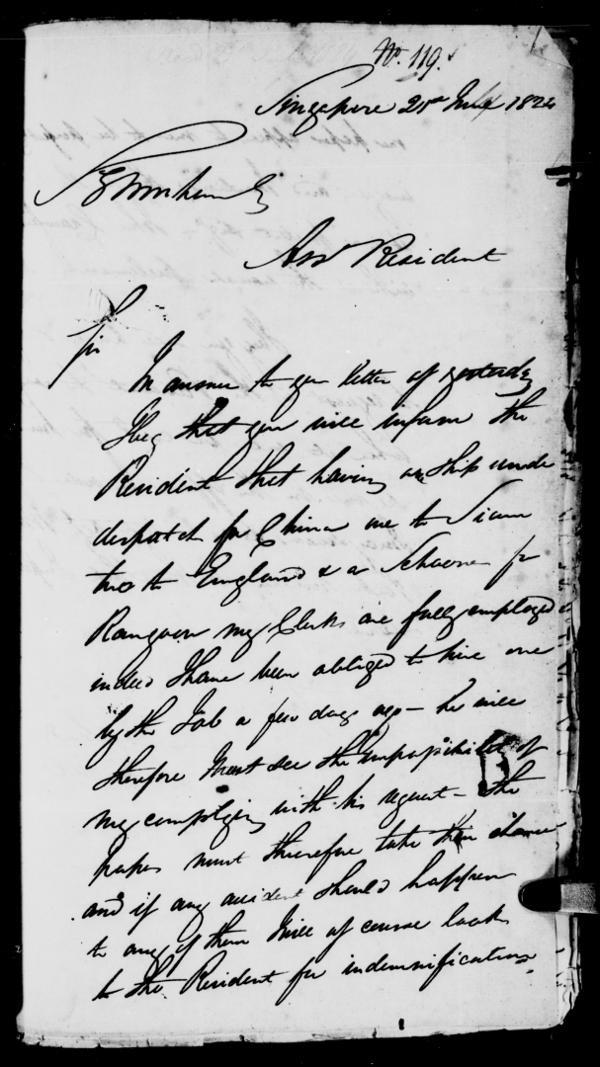 No. 119.
Singapore 25th 1824
S G Bonham Esq
Asst Resident
Sir
In answer to your letter of yesterday
I beg that you will inform the
Resident that having one ship under
despatch for China one to Siam
two to England & a Schooner for
Rangoon my Clerks are fully employed
indeed I have been obliged to hire one
by the Job a few days ago – he will
therefore I trust see the impossibility of
my complying with his request – The
papers must therefore take their chance
and if any accident should happen
to any of them I will of course look
to the Resident for indemnification